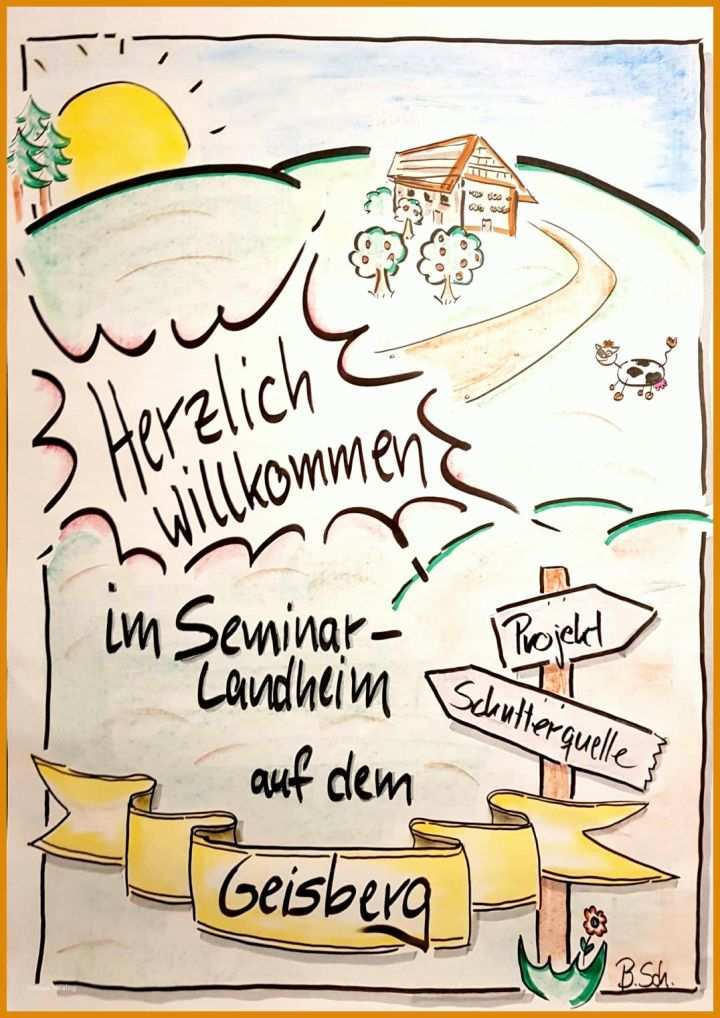 Herzlich
willkommen
im Seminar-
Landheim
auf dem
Geisberg
Projekt
Schutterquelle
B.Sch.